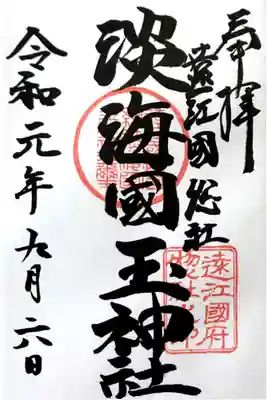 奉拝
遠江國総社
淡海國玉神社
令和元年九月六日
遠江國府